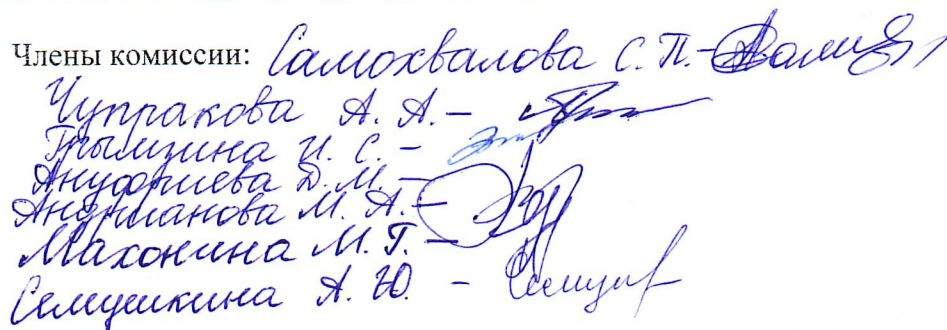 Члены комиссии: Самохвалова С. П. -
Чупракова А. А. -
Грымзина И. С. -
Ануфриева Д. М. -
Андрианова М. А. -
Махонина М. Г. -
Семушкина А. Ю. -